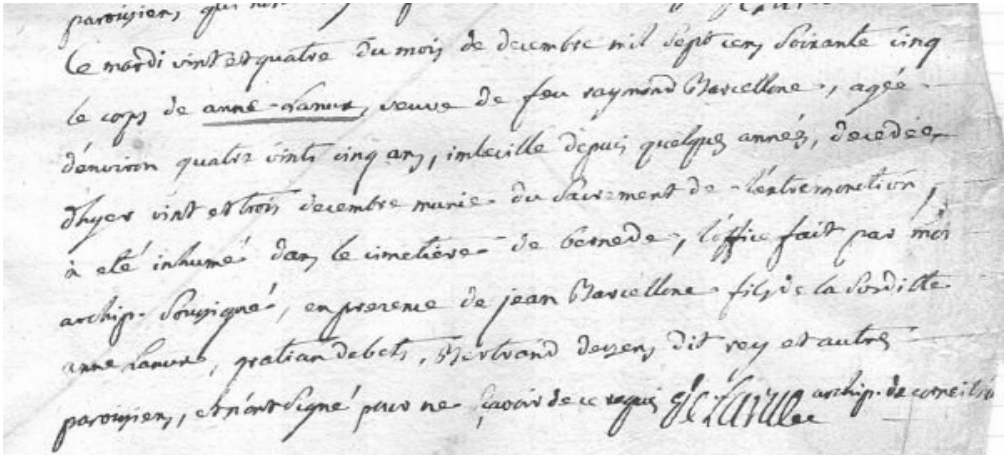 paroisiens, qui n'ont
Le mardi vint et quatre du mois de decembre mil sept cens soixante cinq
le corps de anne Lanux, veuve de feu raymond Barcellone, agée
d'environ quatre vints cinq ans, imbecille depuis quelques années, decedée
d'hyer vint et trois decembre munie du sacrement de l'extremonction,
à eté inhumé dans le cimetiere de bernede, l'office fait par moi
archip. soussigné, en presence de jean Barcellone fils de la susditte
anne Lanux, gratian debets, Bertrand dezens dit rey et autres
paroisiens, et n'ont signé pour ne sçavoir de ce requis archip. de corneillan